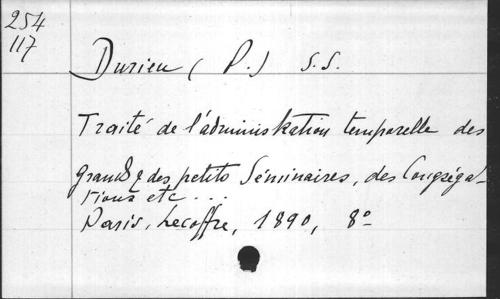 254
117
Durieu (P.) S.S.
Traité de l'administration temporelle des
grands & des petits Séminaires, des Congréga-
tions etc...
Paris, Lecoffre, 1890, 8º